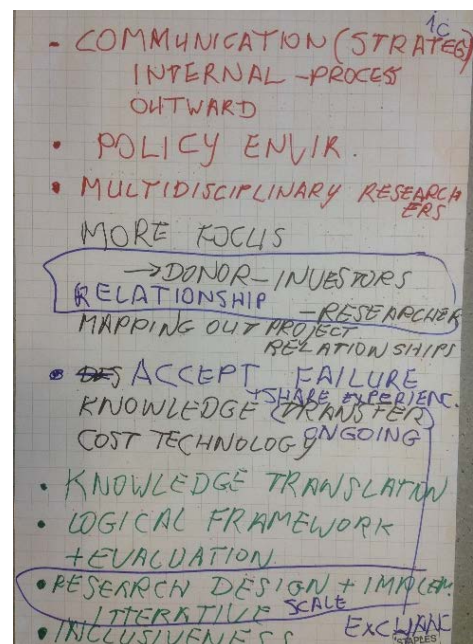 ic
- COMMUNICATION (STRATEG)
INTERNAL - PROCESS
OUTWARD
• POLICY ENVIR.
• MULTIDISCIPLINARY RESEARCH
ERS
MORE FOCUS
→ DONOR - INVESTORS
RELATIONSHIP - RESEARCHER
MAPPING OUT PROJECT
RELATIONSHIPS
• ACCEPT FAILURE
+ SHARE EXPERIENC.
KNOWLEDGE (TRANSFER
COST TECHNOLOGY ONGOING
• KNOWLEDGE TRANSLATION
• LOGICAL FRAMEWORK
+ EVALUATION
• RESEARCH DESIGN + IMPLEM
ITTERATIVE SCALE
• INCLUSIVENESS EXCHANC
STAPLES